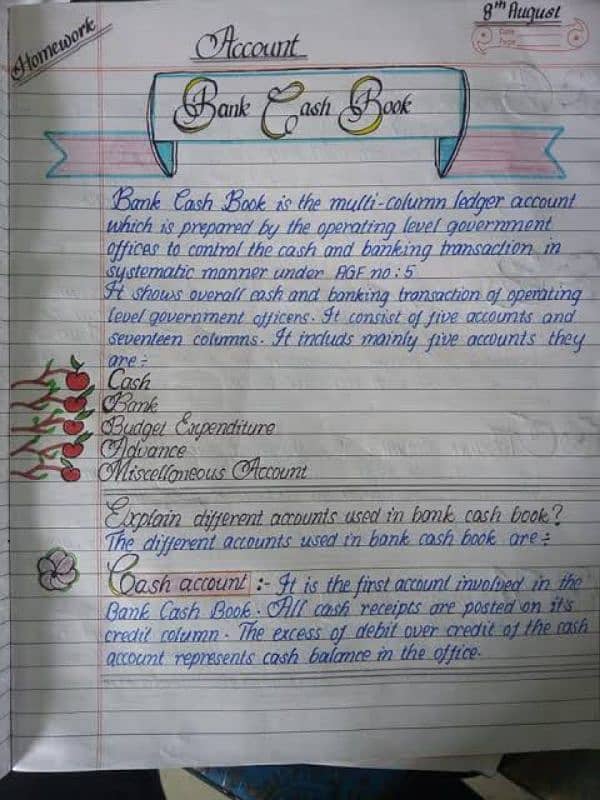 Homework
8th August
Date
Page
Account
Bank Cash Book
Bank Cash Book is the multi-column ledger account
which is prepared by the operating level government
offices to control the cash and banking transaction in
systematic manner under AGF no : 5
It shows overall cash and banking transaction of operating
level government officers. It consist of five accounts and
seventeen columns. It includs mainly five accounts they
are :-
Cash
Bank
Budget Expenditure
Advance
Miscelloneous Account
Explain different accounts used in bank cash book?
The different accounts used in bank cash book are :-
Cash account :- It is the first account involved in the
Bank Cash Book. All cash receipts are posted on its
credit column. The excess of debit over credit of the cash
account represents cash balance in the office.